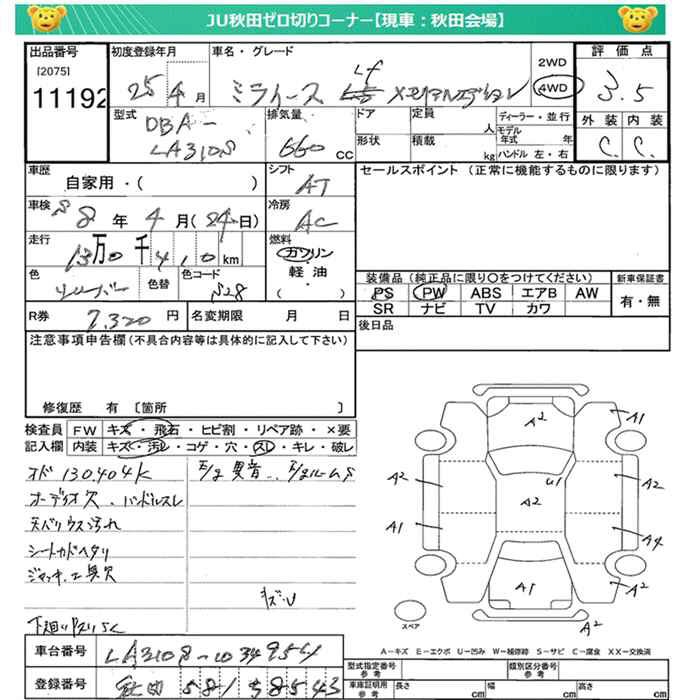 JU秋田ゼロ切りコーナー【現車：秋田会場】
出品番号
[2075]
11192
初度登録年月
25 4月
車名・グレード
ミライース Lf メモリアルエディション
2WD
4WD
評価点
3.5
外装 内装
C. C.
型式
DBA-
LA310S
排気量
660 CC
ドア
形状
定員
人
積載
kg
ディーラー・並行
モデル年式 年
ハンドル 左・右
車歴
自家用・( )
シフト
AT
セールスポイント (正常に機能するものに限ります)
車検
8年 4月(24日)
冷房
AC
走行
13万0千4 1 0 km
燃料
ガソリン
軽油・
( )
色
シルバー
色替
色コード
S28
装備品(純正品に限り○をつけてください)
PS PW ABS エアB AW
SR ナビ TV カワ
新車保証書
有・無
R券
7,320円
名変期限 月 日
後日品
注意事項申告欄(不具合内容等は具体的に記入して下さい)
修復歴 有 [箇所 ]
検査員
記入欄
FW キズ・飛石・ヒビ割・リペア跡・×要
内装 キズ・汚レ・コゲ・穴・スレ・キレ・破レ
オド 130,404K
オーディオ欠. ハンドルスレ
天バリウス汚れ
シートカドヘタリ
ジャッキ.工具欠
下廻りサビ
E/g異音
キズ・U
A2
A1
U1
A2
A2
A2
A1
A4
A1
A2
A2
スペア
A－キズ E－エクボ U－凹み W－補修跡 S－サビ C－腐食 XX－交換済
車台番号
LA310S-1034954
登録番号
秋田 581 す8543
型式指定番号
参考
類別区分番号
参考
車庫証明用
参考
長さ cm
幅 cm
高さ cm